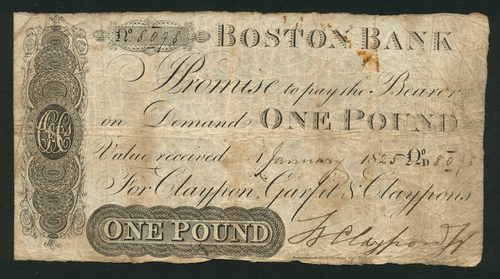 No. 8098
BOSTON BANK
I Promise to pay the Bearer
on Demand ONE POUND
Value received 1 January 1825 No. 8098
For Claypon, Garfit & Claypons
ONE POUND